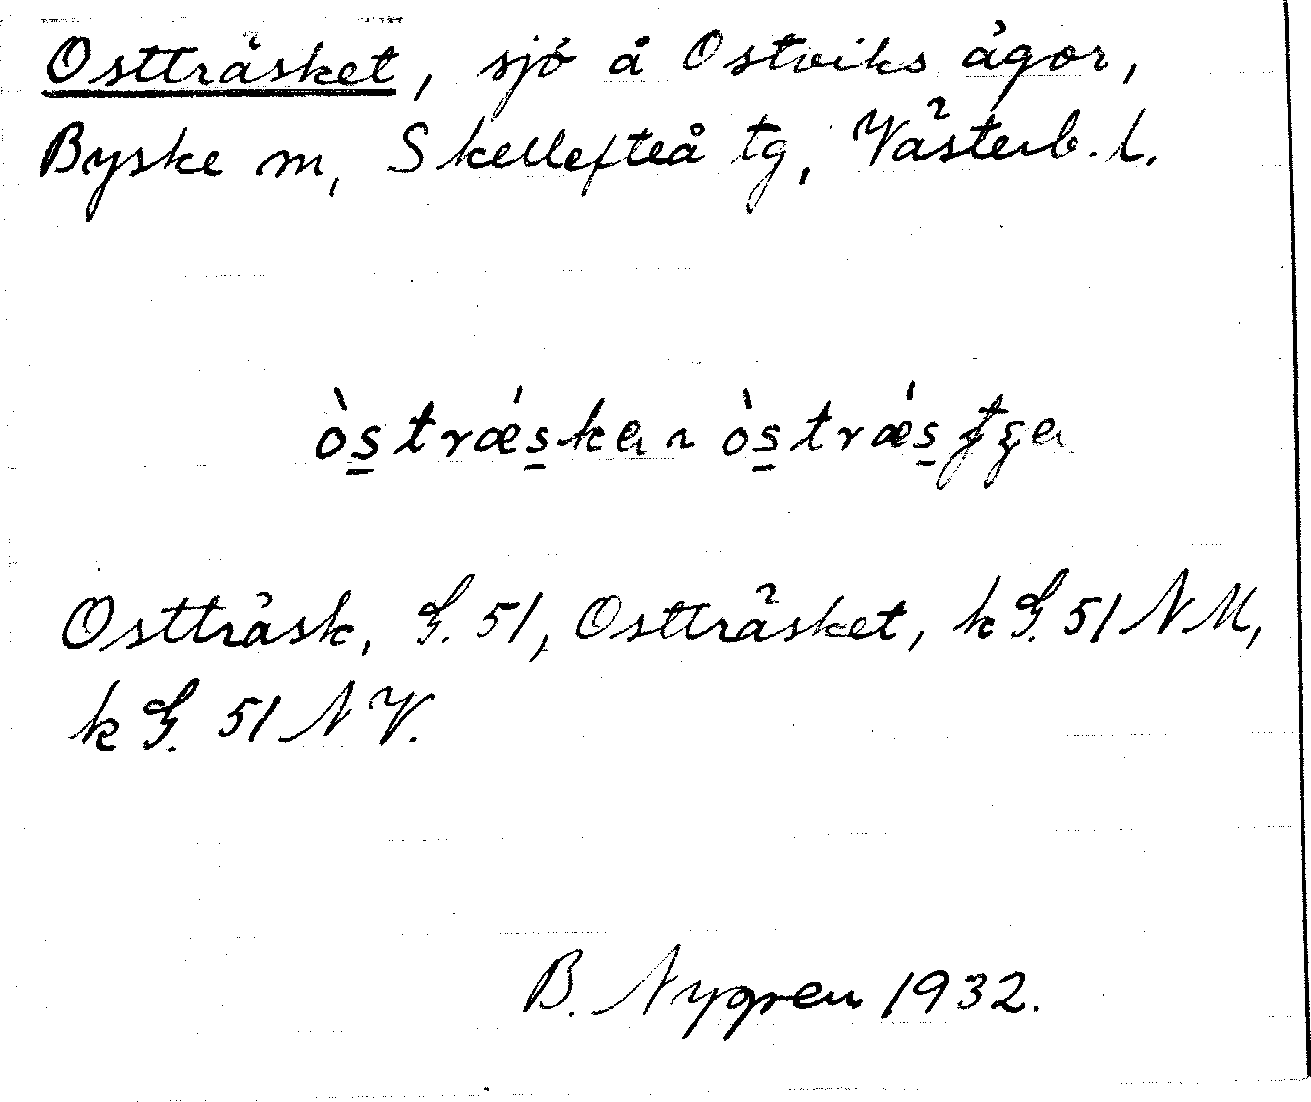 Ostträsket, sjö å Ostviks ägor,
Byske sn, Skellefteå tg, Västerb. l.
òs̲trǽs̲ka ~ òs̲trǽs̲
Ostträsk, G. 51, Ostträsket, k G. 51 NM,
k G. 51 NV.
B. Nygren 1932.